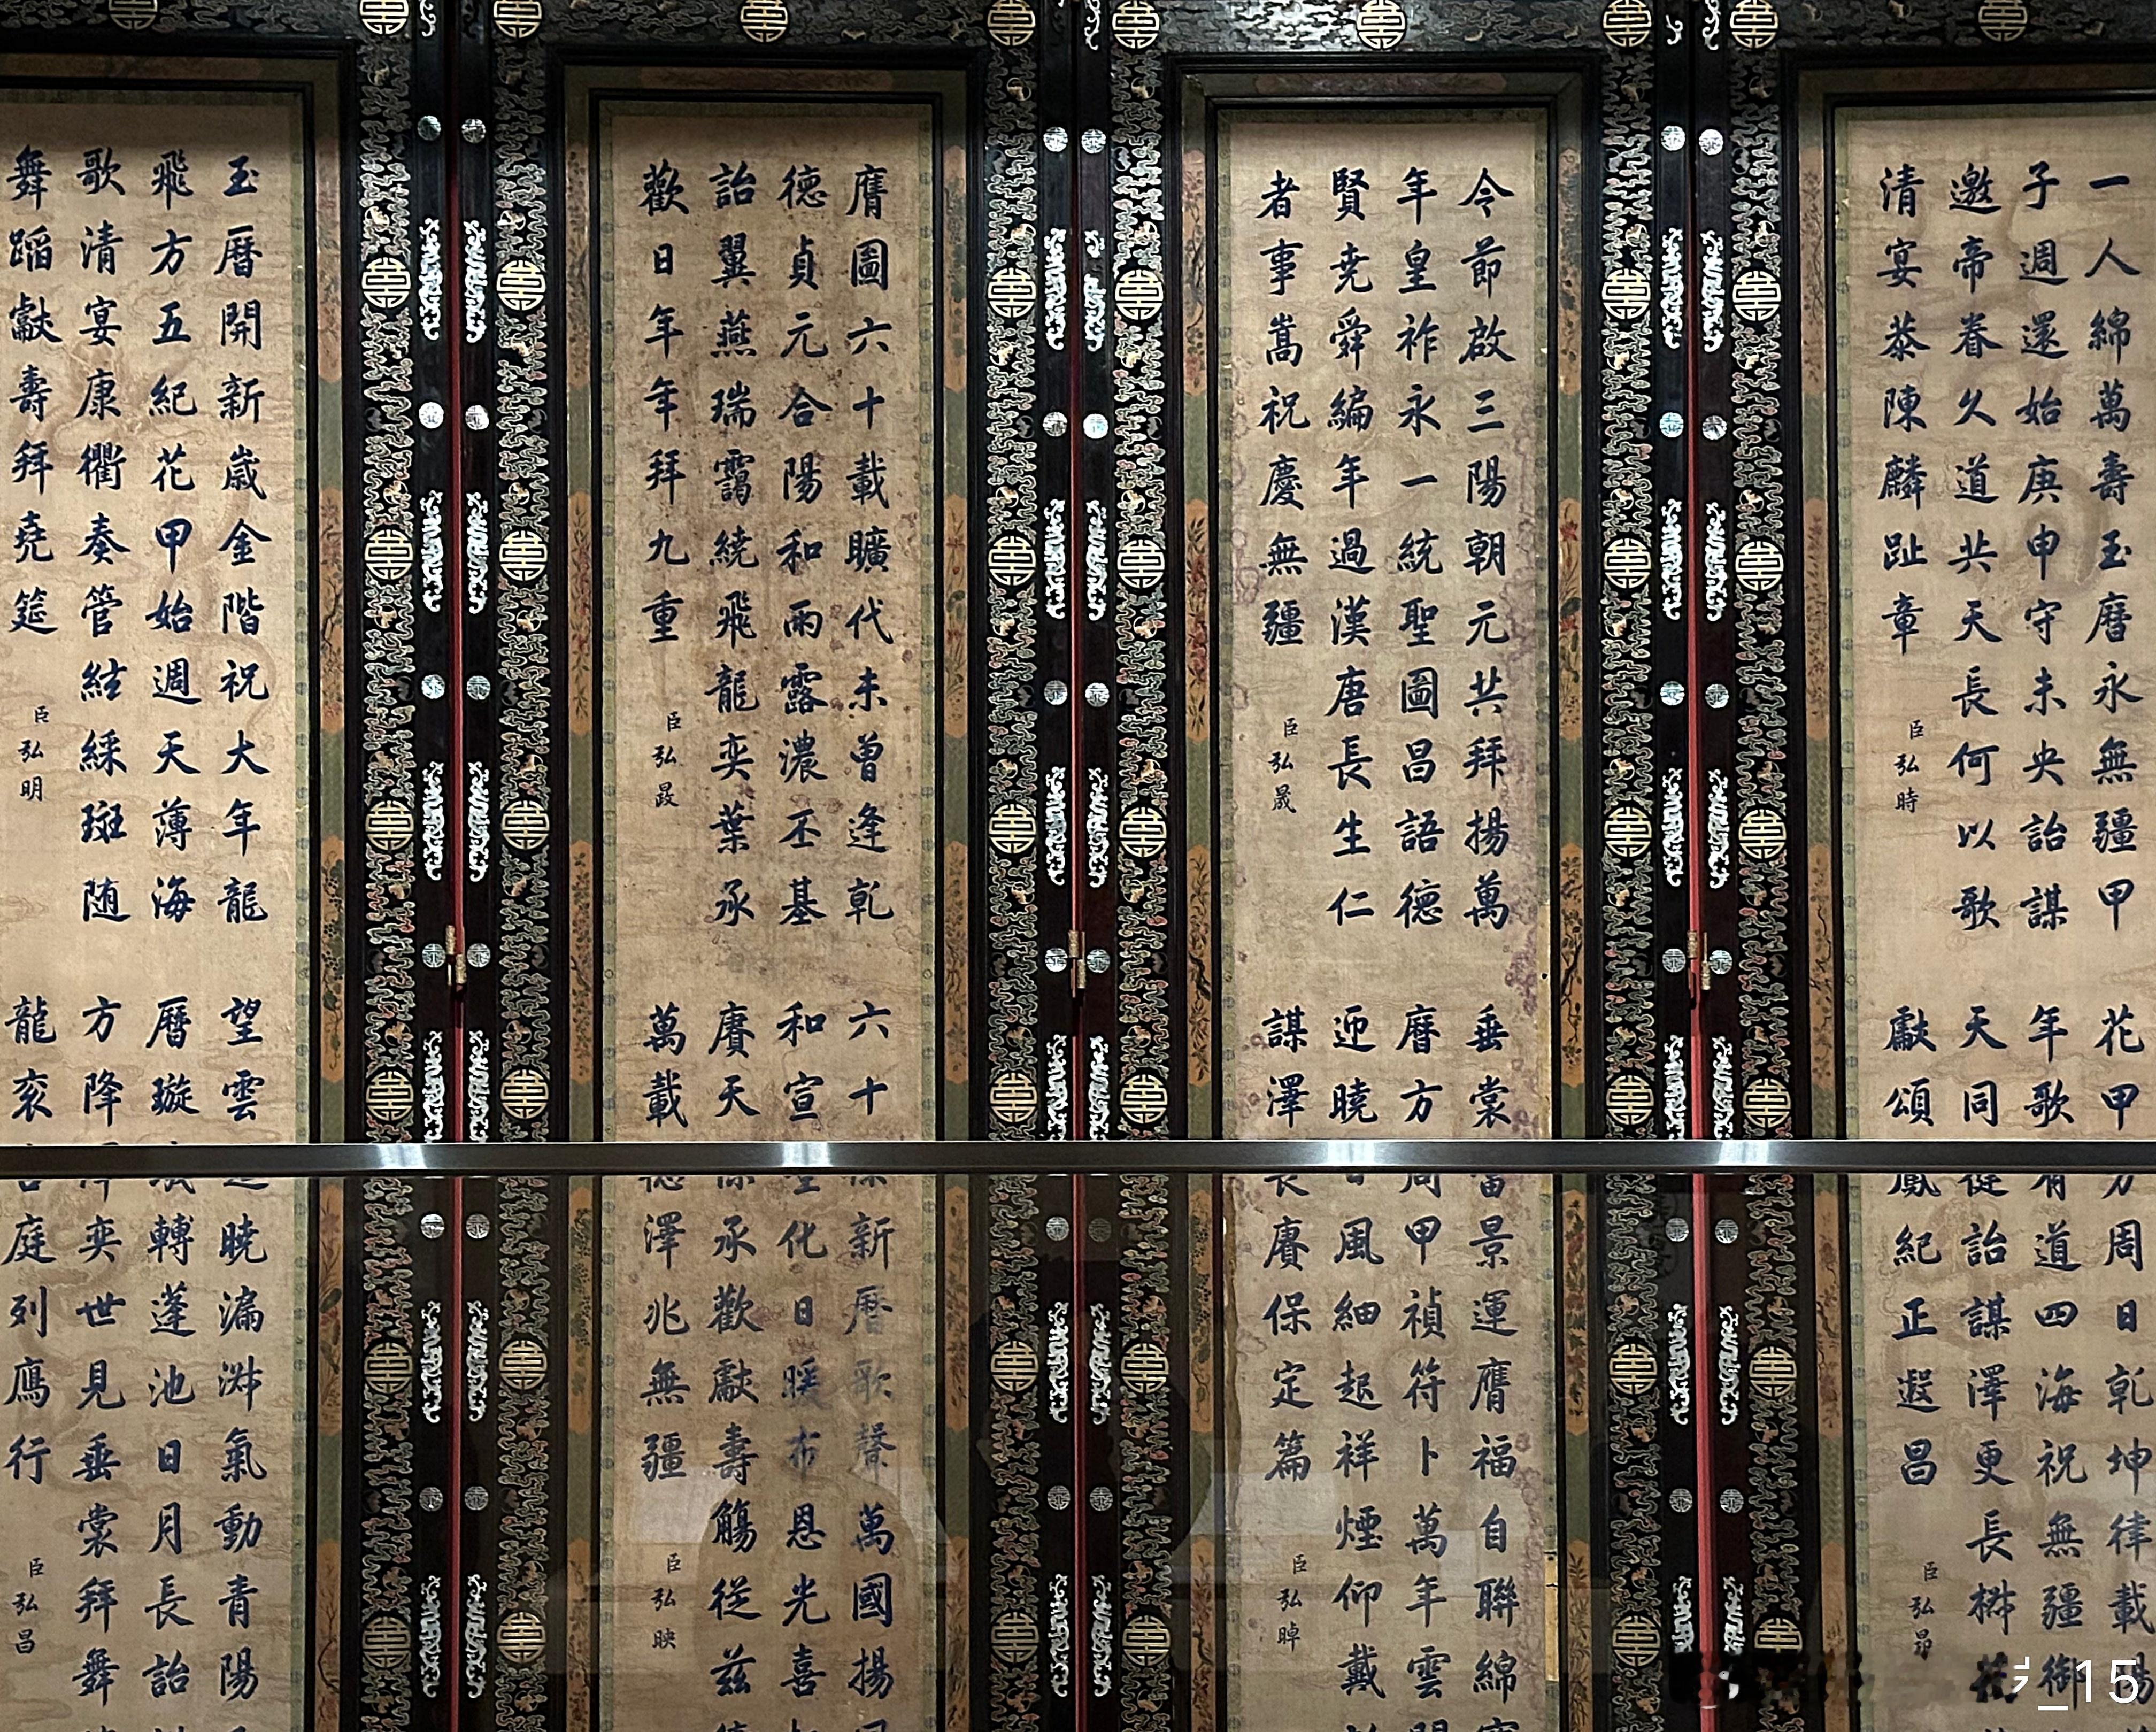 一人綿萬壽玉曆永無疆甲
子週還始庚申守未央詒謀
邀帝眷久道共天長何以歌
清宴恭陳麟趾章
臣弘時
花甲方周日乾坤律載
年歌有道四海祝無疆御
天同從詒謀澤更長桝花
獻頌鳳紀正遐昌
臣弘昂
令節啟三陽朝元共拜揚萬
年皇祚永一統聖圖昌語德
賢尭舜編年過漢唐長生仁
者事嵩祝慶無疆
臣弘晟
垂裳當景運膺福自聯綿
曆方周甲禎符卜萬年雲
迎曉日風細起祥煙仰戴
謀澤長賡保定篇
臣弘晫
膺圖六十載曠代未曾逢乾
德貞元合陽和雨露濃丕基
詒翼燕瑞靄繞飛龍奕葉承
歡日年年拜九重
臣弘晸
六十新曆歌聲萬國揚
和宣聖化日暖布恩光喜
賡天保承歡獻壽觴從茲
萬載德澤兆無疆
臣弘映
玉曆開新嵗金階祝大年龍
飛方五紀花甲始週天薄海
歌清宴康衢奏管絃綵斑随
舞蹈獻壽拜尭筵
臣弘明
望雲曉漏淋氣動青陽
曆璇轉蓬池日月長詒
方降奕世見垂裳拜舞
龍衮庭列鴈行
臣弘昌
_15